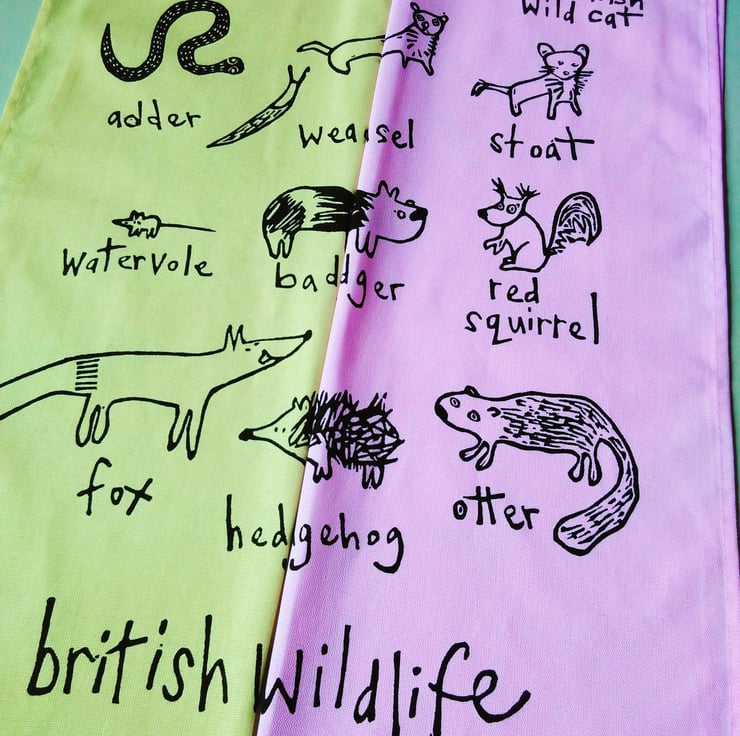 wild cat
adder
weasel
stoat
watervole
baddger
red
squirrel
fox
hedgehog
otter
british wildlife